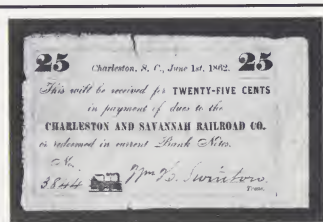 25 Charleston, S. C., June 1st, 1862. 25
This will be received for TWENTY-FIVE CENTS
in payment of dues to the
CHARLESTON AND SAVANNAH RAILROAD CO.
or redeemed in current Bank Notes.
No.
3844 Wm. H. Swinton
Treas.